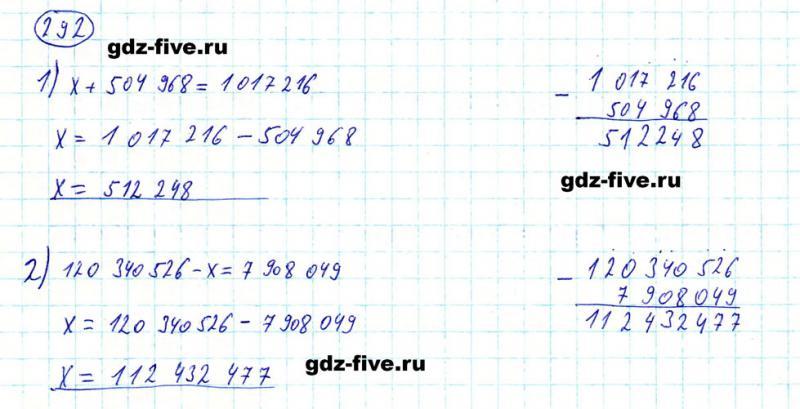 292
gdz-five.ru
1) x + 504 968 = 1 017 216
x = 1 017 216 - 504 968
x = 512 248
- 1 017 216
504 968
512248
gdz-five.ru
2) 120 340 526 - x = 7 908 049
x = 120 340 526 - 7 908 049
x = 112 432 477
- 120 340 526
7 908 049
112 432 477
gdz-five.ru